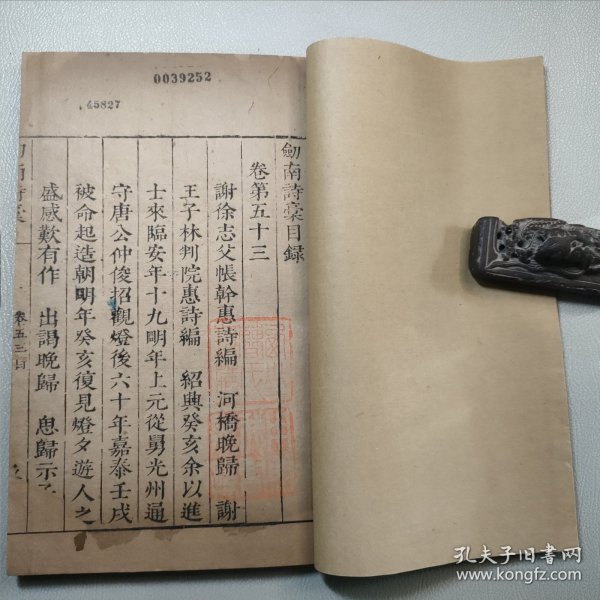 0039252
45827
劒南詩稾目録
卷第五十三
謝徐志父帳幹惠詩編　河橋晚歸　謝
王子林判院惠詩編　紹興癸亥余以進
士來臨安年十九明年上元從舅光州通
守唐公仲俊招觀燈後六十年嘉泰壬戌
被命起造朝明年癸亥復見燈夕遊人之
盛感歎有作　出謁晚歸　思歸示
卷五三目
孔夫子旧書网
www.kongfz.com